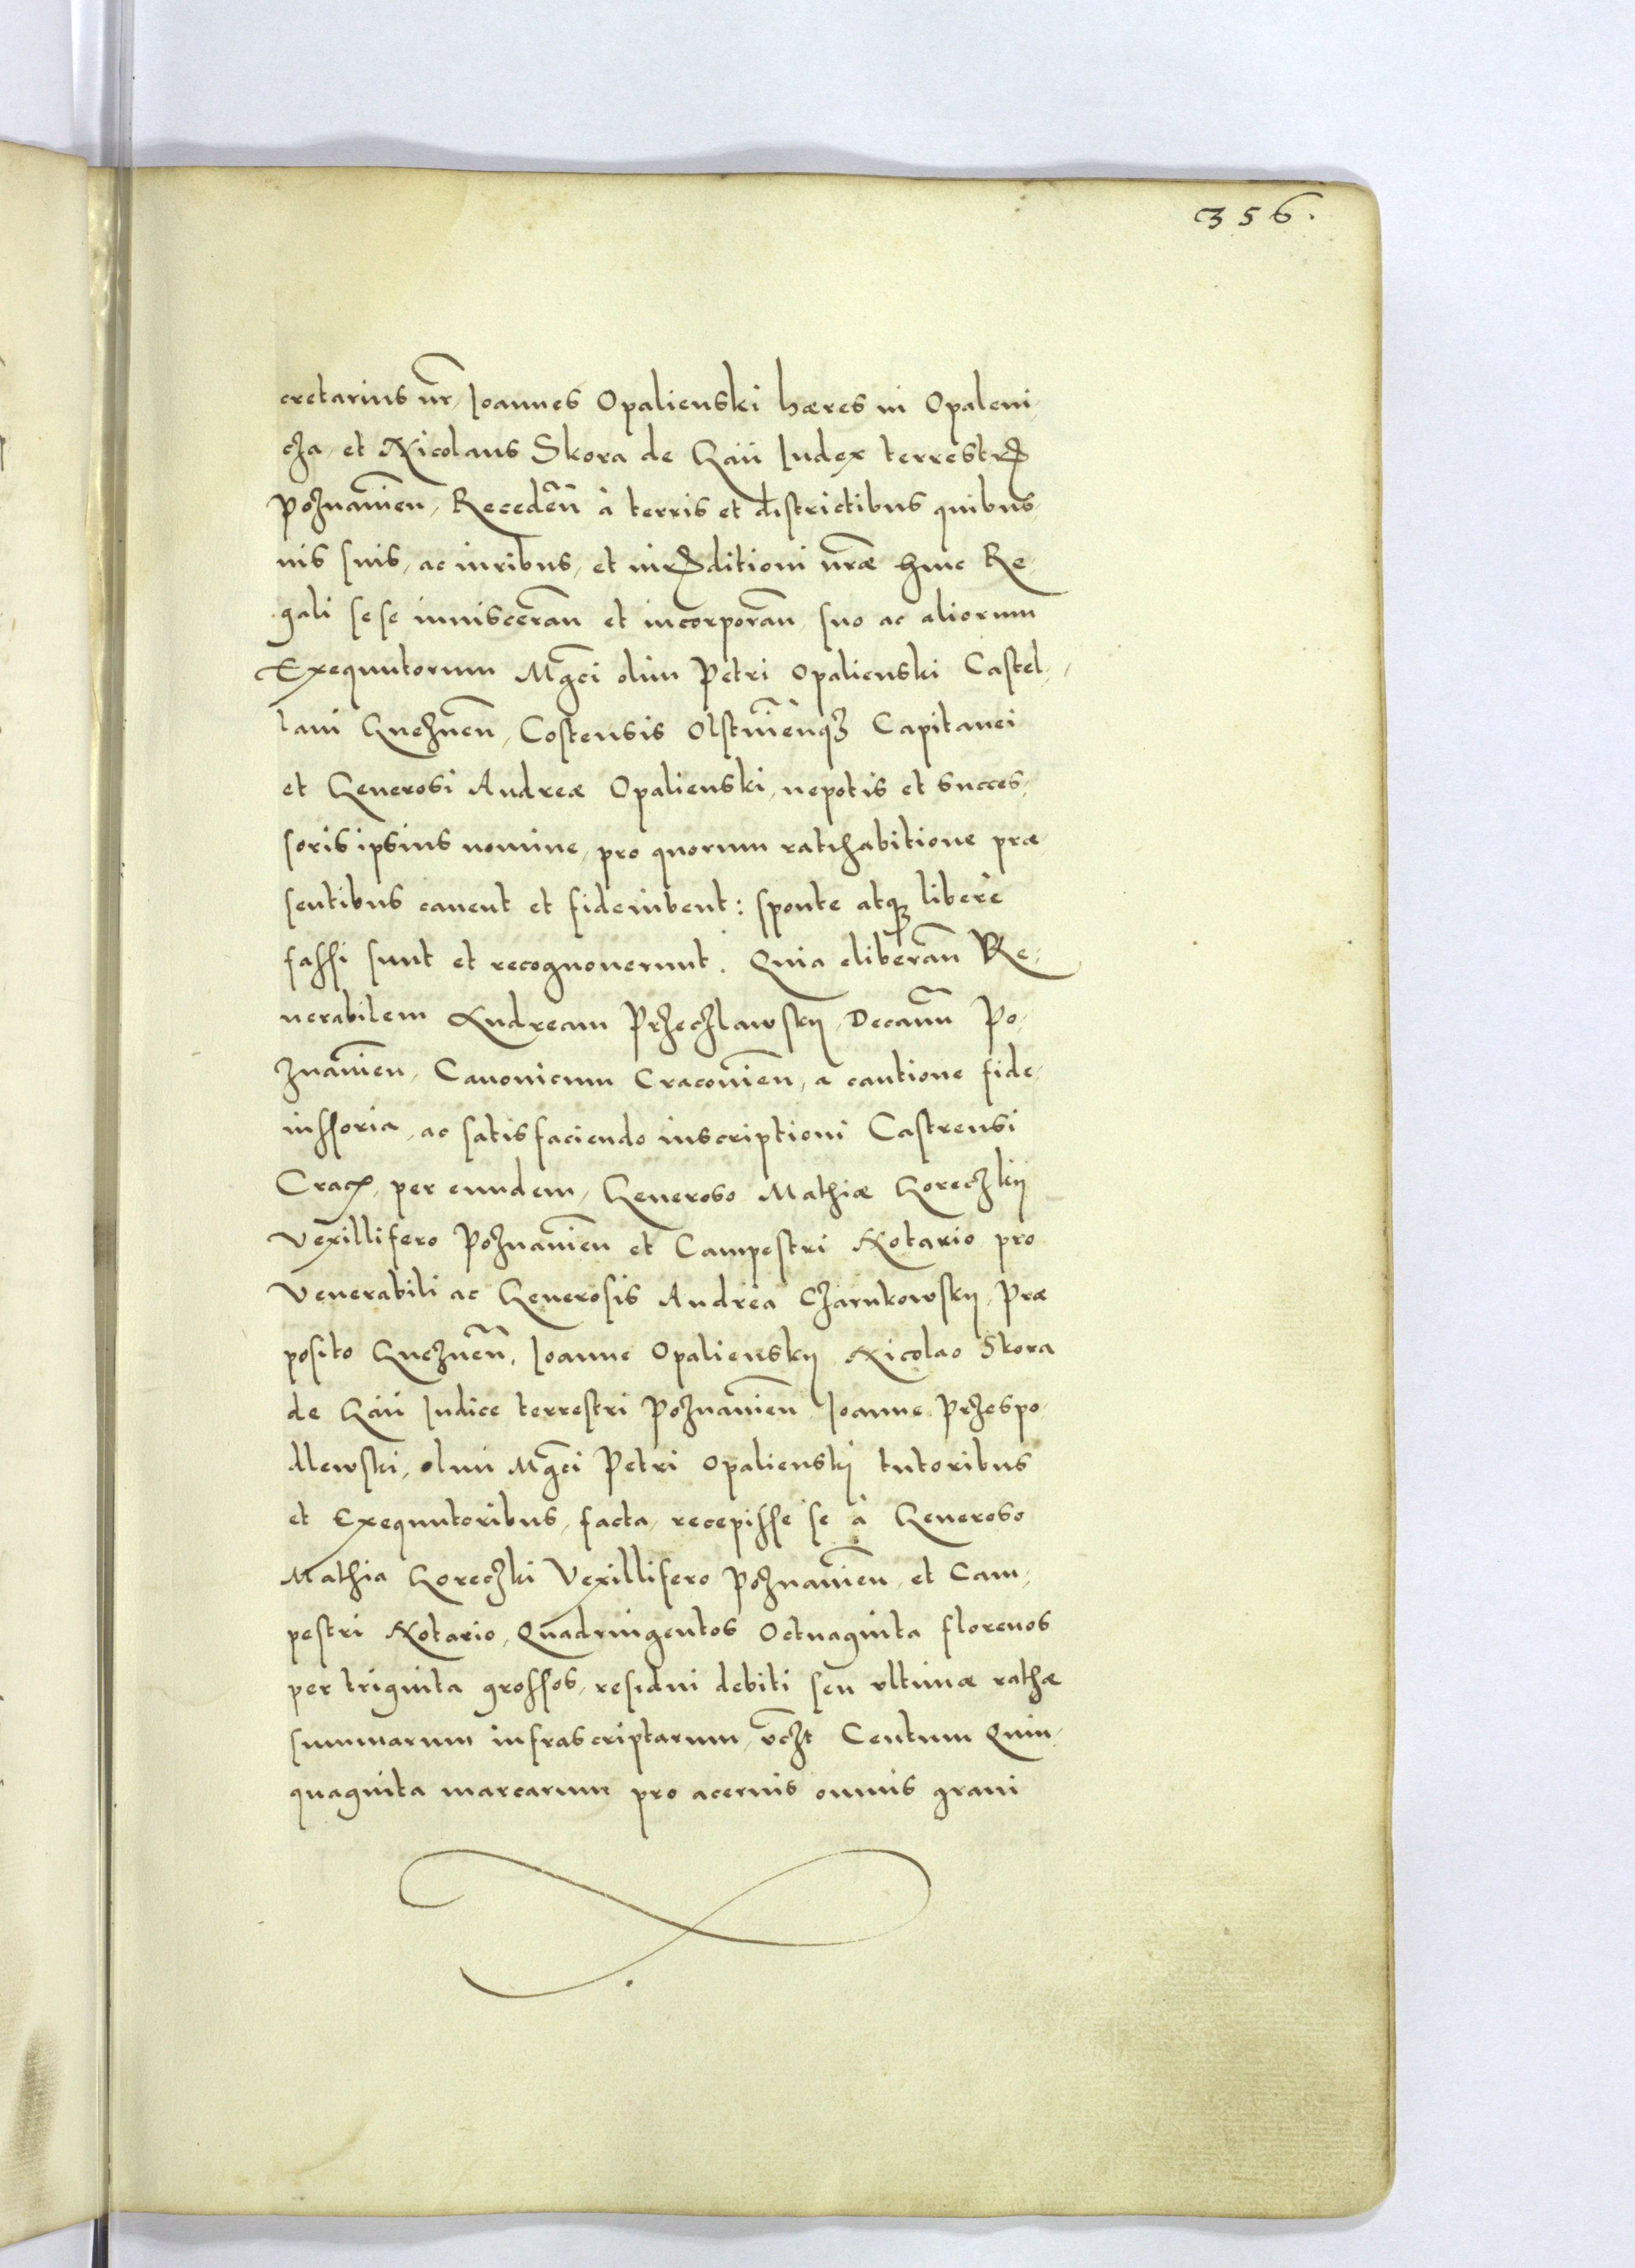 356.
cretarius nr̃, Ioannes Opalienski hæres in Opaleni,
cza, et Nicolaus Skora de Gaii Iudex terrestris
Poznanieñ, Recedeñ à terris et districtibus quibus,
uis suis, ac iuribus, et iurisditioni nræ̃ huic Re,
gali sese inmisceran̄ et incorporan̄, suo ac aliorum
Exequutorum Mg̃ci olim Petri Opalienski Castel,
lani Gneznen̄, Costensis Olstinien̄q3 Capitanei
et Generosi Andreæ Opalienski, nepotis et succes,
soris ipsius nomine, pro quorum ratihabitione præ
sentibus cauent et fideiubent: sponte atq3 liberè
fassi sunt et recognouerunt. Quia eliberan̄ Ve,
nerabilem Andream Przeczlawskÿ, Decanũ Po,
znanien̄, Canonicum Cracouien̄, a cautione fide,
iussoria, ac satisfaciendo inscriptioni Castrensi
Crac̃, per eundem, Generoso Mathiæ Goreczkÿ
Vexillifero Poznanien̄ et Campestri Notario pro
Venerabili ac Generosis Andrea Czarnkowskÿ, Præ
posito Gneznen̄, Ioanne Opalienskÿ, Nicolao Skora
de Gaii Iudice terrestri Poznanien̄ Ioanne Przespo
llewski, olim Mg̃ci Petri Opalienskÿ tutoribus
et Exequutoribus, facta, recepisse se à Generoso
Mathia Goreczki Vexillifero Poznanien̄, et Cam,
pestri Notario, Quadringentos Octuaginta florenos
per triginta grossos, residui debiti seu vltimæ rathæ
summarum infrascriptarum, vcz̃t Centum Quin,
quaginta marcarum pro aceruis omnis grani